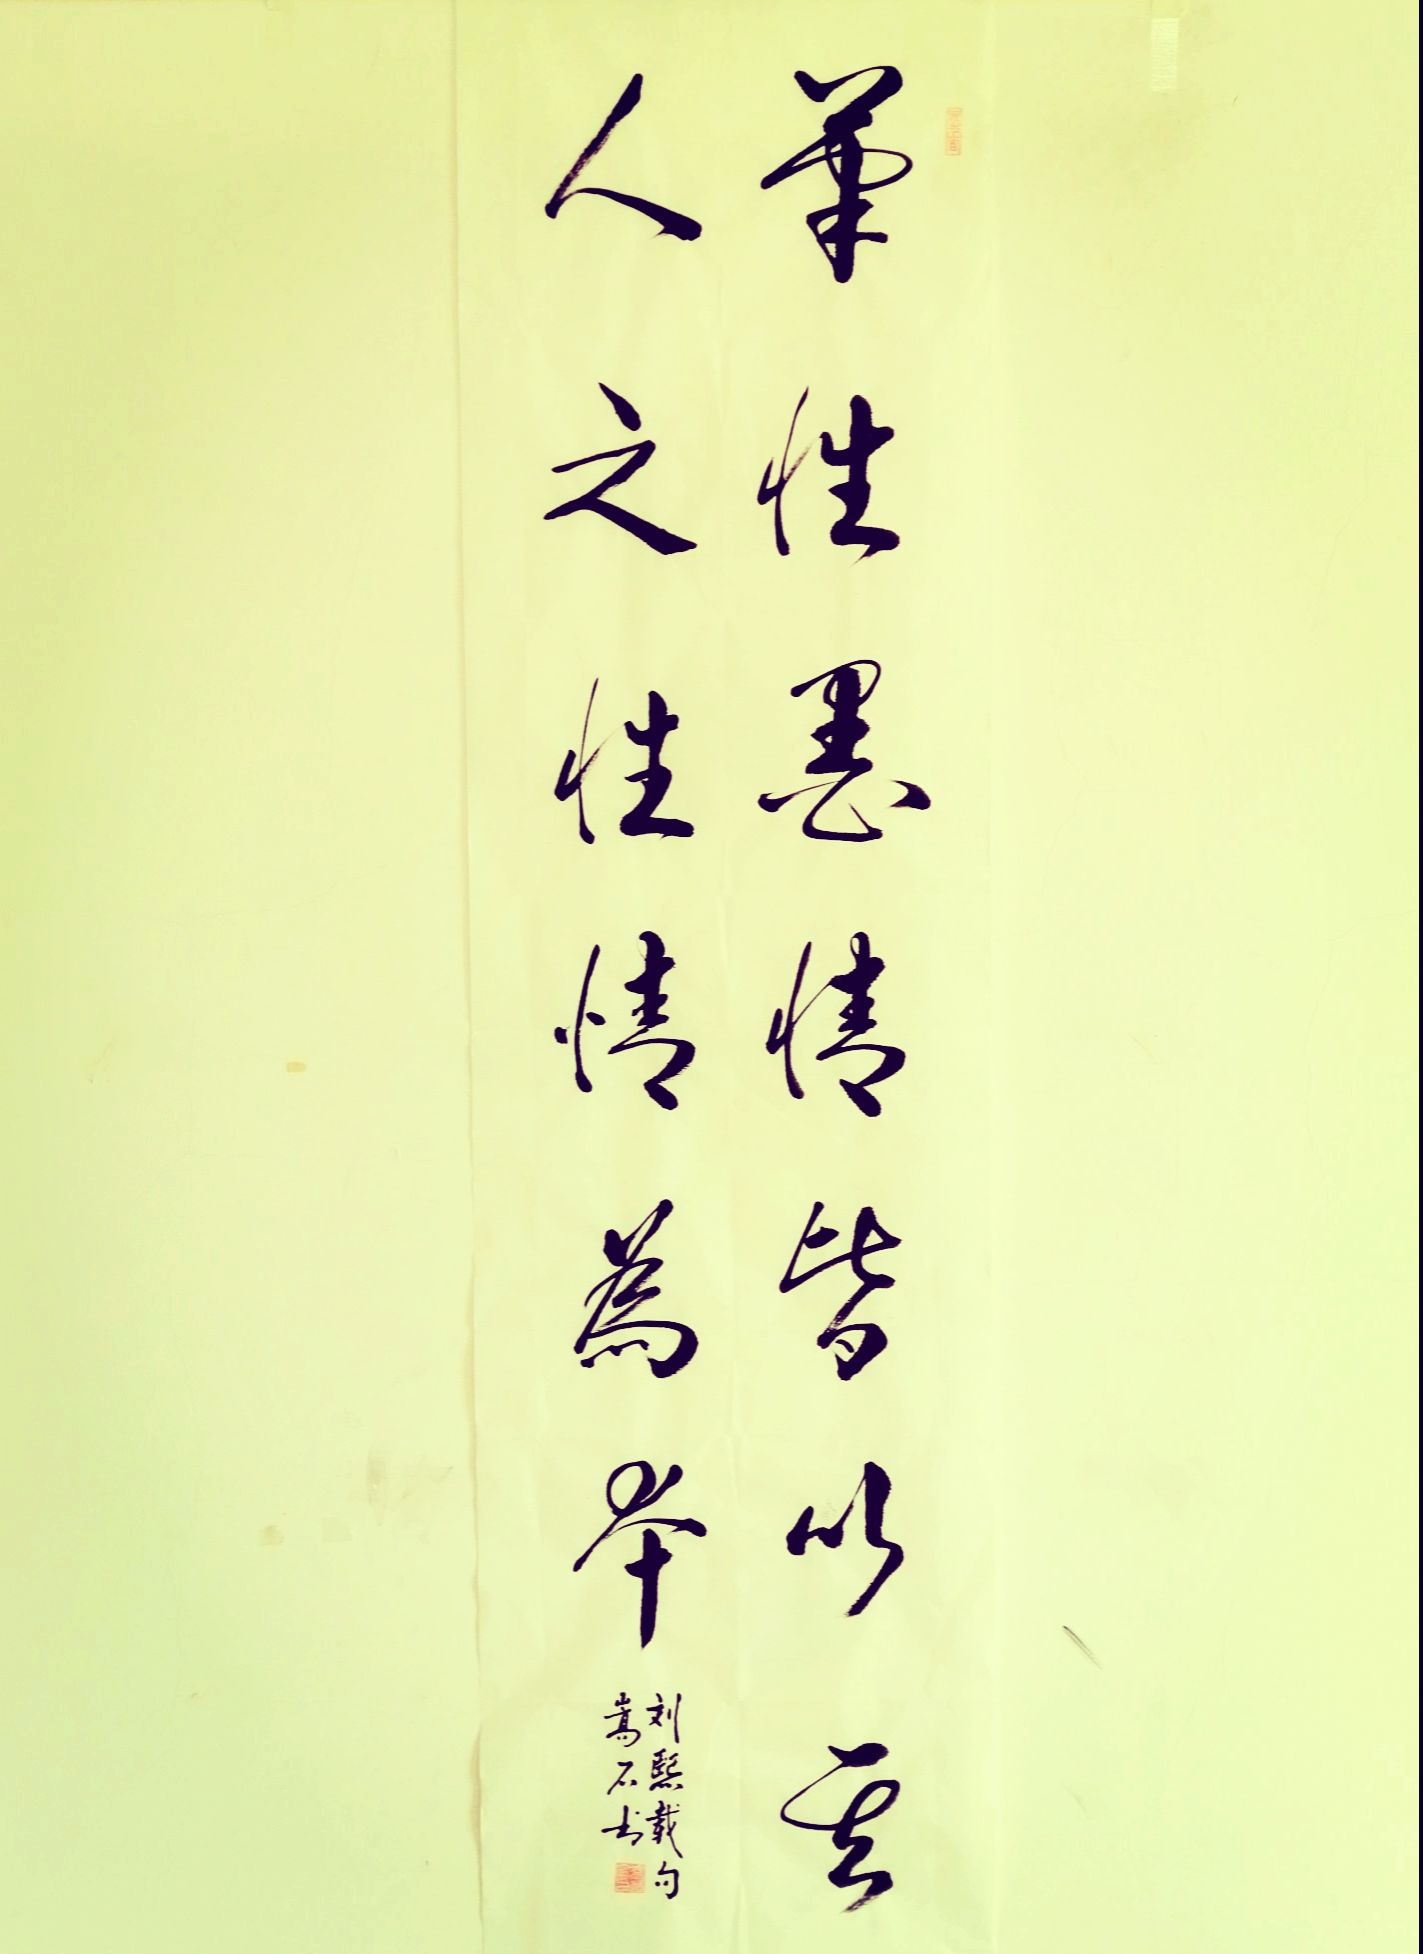 筆性墨情皆以其
人之性情為本
刘熙载句
嵩石书